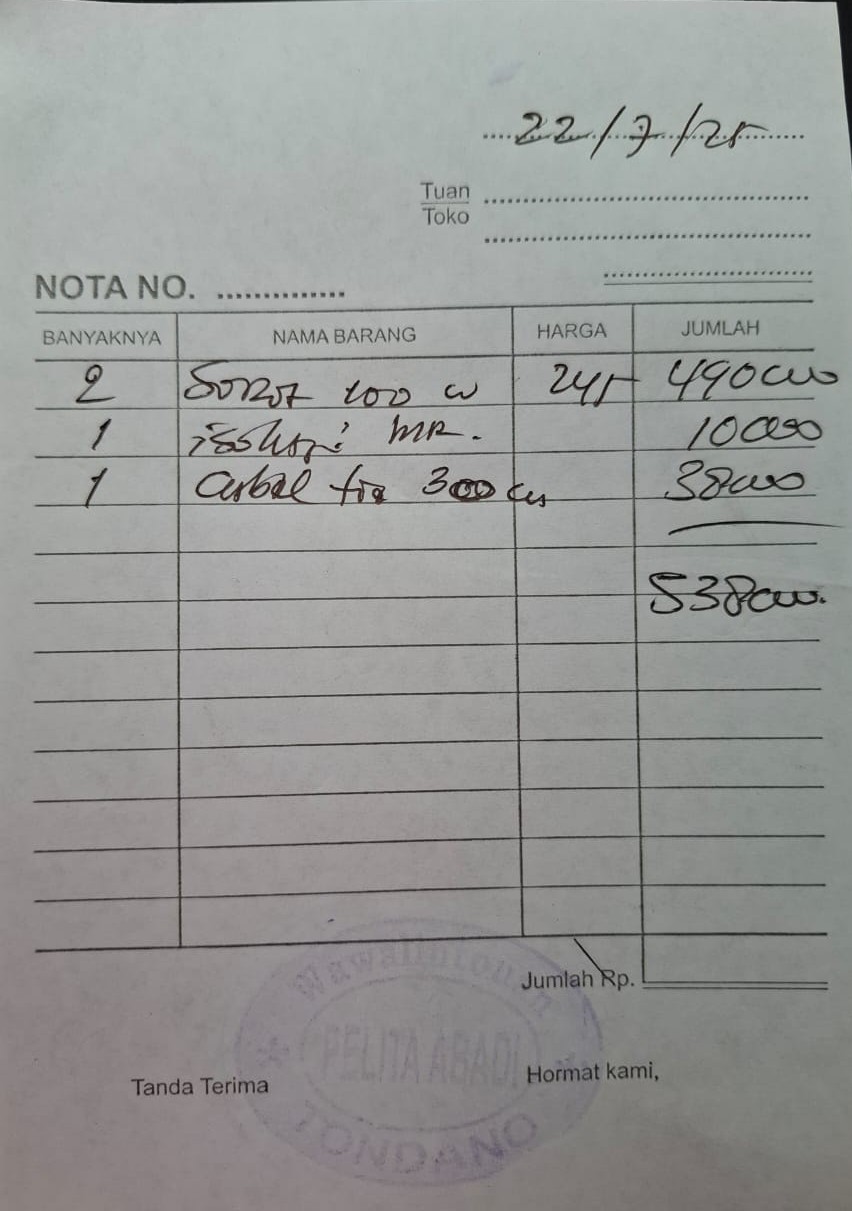 22/7/25
Tuan
Toko
NOTA NO.
BANYAKNYA NAMA BARANG HARGA JUMLAH
2 Sorot 100 w 245 490000
1 isolasi 10000
1 300 38000
538000.
Jumlah Rp.
Tanda Terima Hormat kami,
Wawalintouan
PELITA ABADI
TONDANO